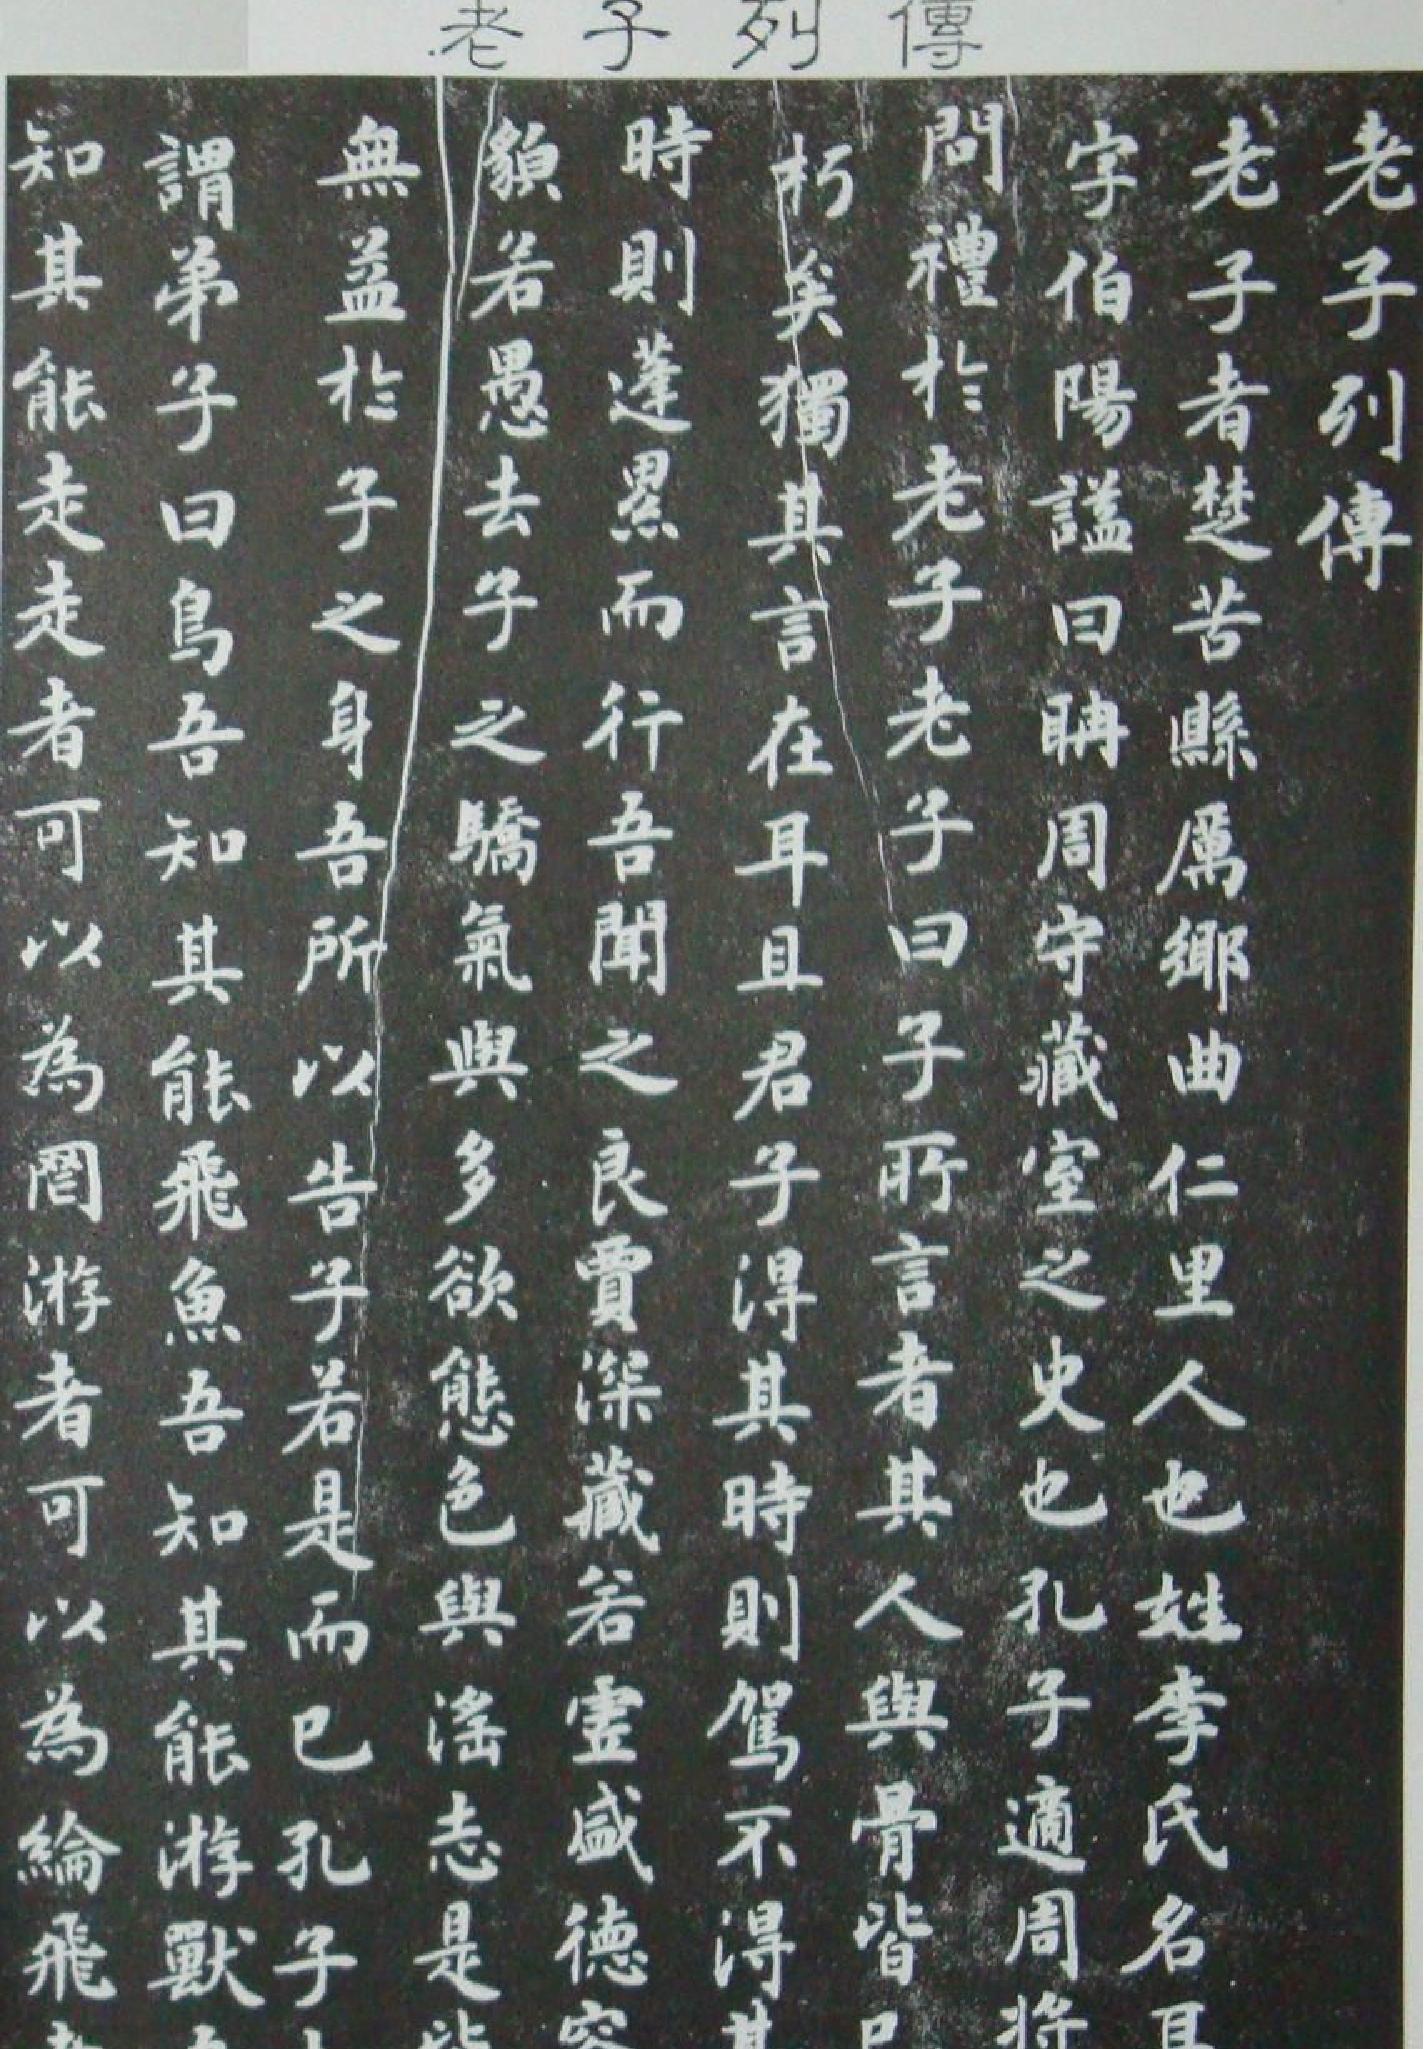 老子列傳
老子列傳
老子者楚苦縣厲鄉曲仁里人也姓李氏名耳
字伯陽謚曰聃周守藏室之史也孔子適周將
問禮於老子老子曰子所言者其人與骨皆已
朽矣獨其言在耳且君子得其時則駕不得其
時則蓬累而行吾聞之良賈深藏若虛盛德容
貌若愚去子之驕氣與多欲態色與淫志是皆
無益於子之身吾所以告子若是而已孔子去
謂弟子曰鳥吾知其能飛魚吾知其能游獸吾
知其能走走者可以為罔游者可以為綸飛者